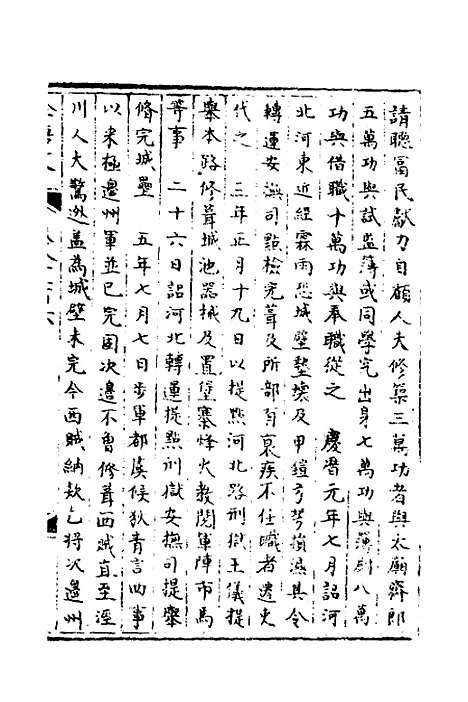 請聽富民獻力自顧人夫修築三萬功者與太廟齋郎
五萬功與試監簿或同學究出身七萬功與簿尉八萬
功與借職十萬功與奉職從之　慶曆元年七月詔河
北河東近經霖雨恐城壁墊壞及甲鎧弓弩損濕其令
轉運安撫司點檢完葺及所部有衰疾不任職者遣吏
代之　三年正月十九日以提點河北路刑獄王儀提
舉本路修葺城池器械及置堡寨烽火教閱軍陣市馬
等事　二十六日詔河北轉運提點刑獄安撫司提舉
脩完城壘　五年七月七日步軍都虞候狄青言四事
以来極邉州軍並已完固次邉不曾修葺西賊直至涇
川人夫驚迯盖為城壁未完今西賊納欵乞将次邉州